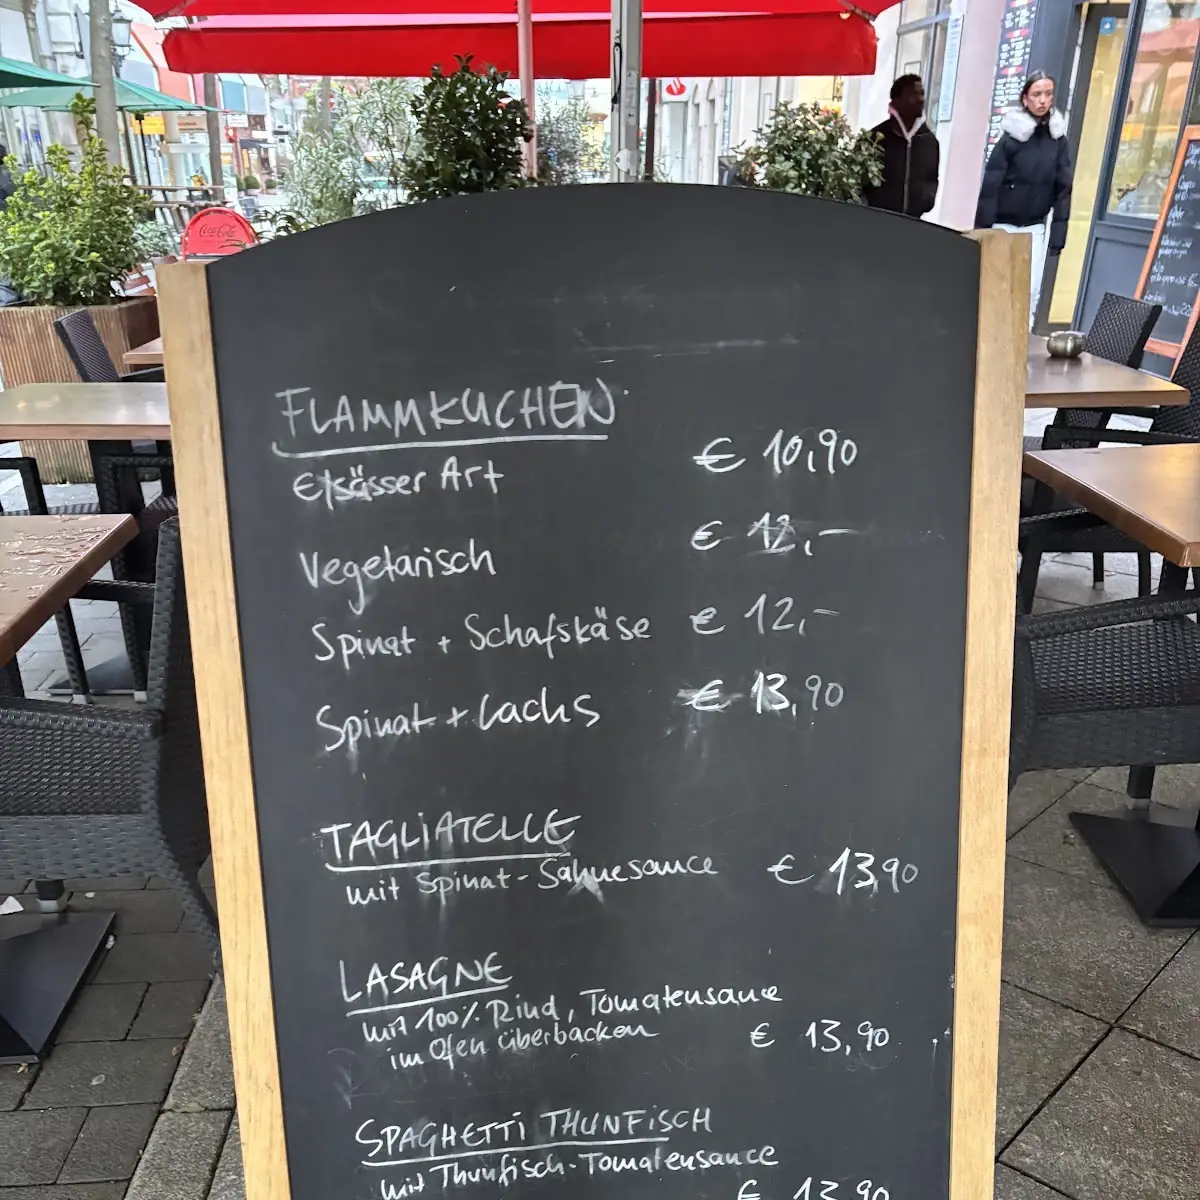 Coca-Cola
FLAMMKUCHEN
Elsässer Art € 10,90
Vegetarisch € 12,–
Spinat + Schafskäse € 12,–
Spinat + Lachs € 13,90
TAGLIATELLE
mit Spinat-Sahnesauce € 13,90
LASAGNE
mit 100% Rind, Tomatensauce
im Ofen überbacken € 13,90
SPAGHETTI THUNFISCH
mit Thunfisch-Tomatensauce
€ 13,90